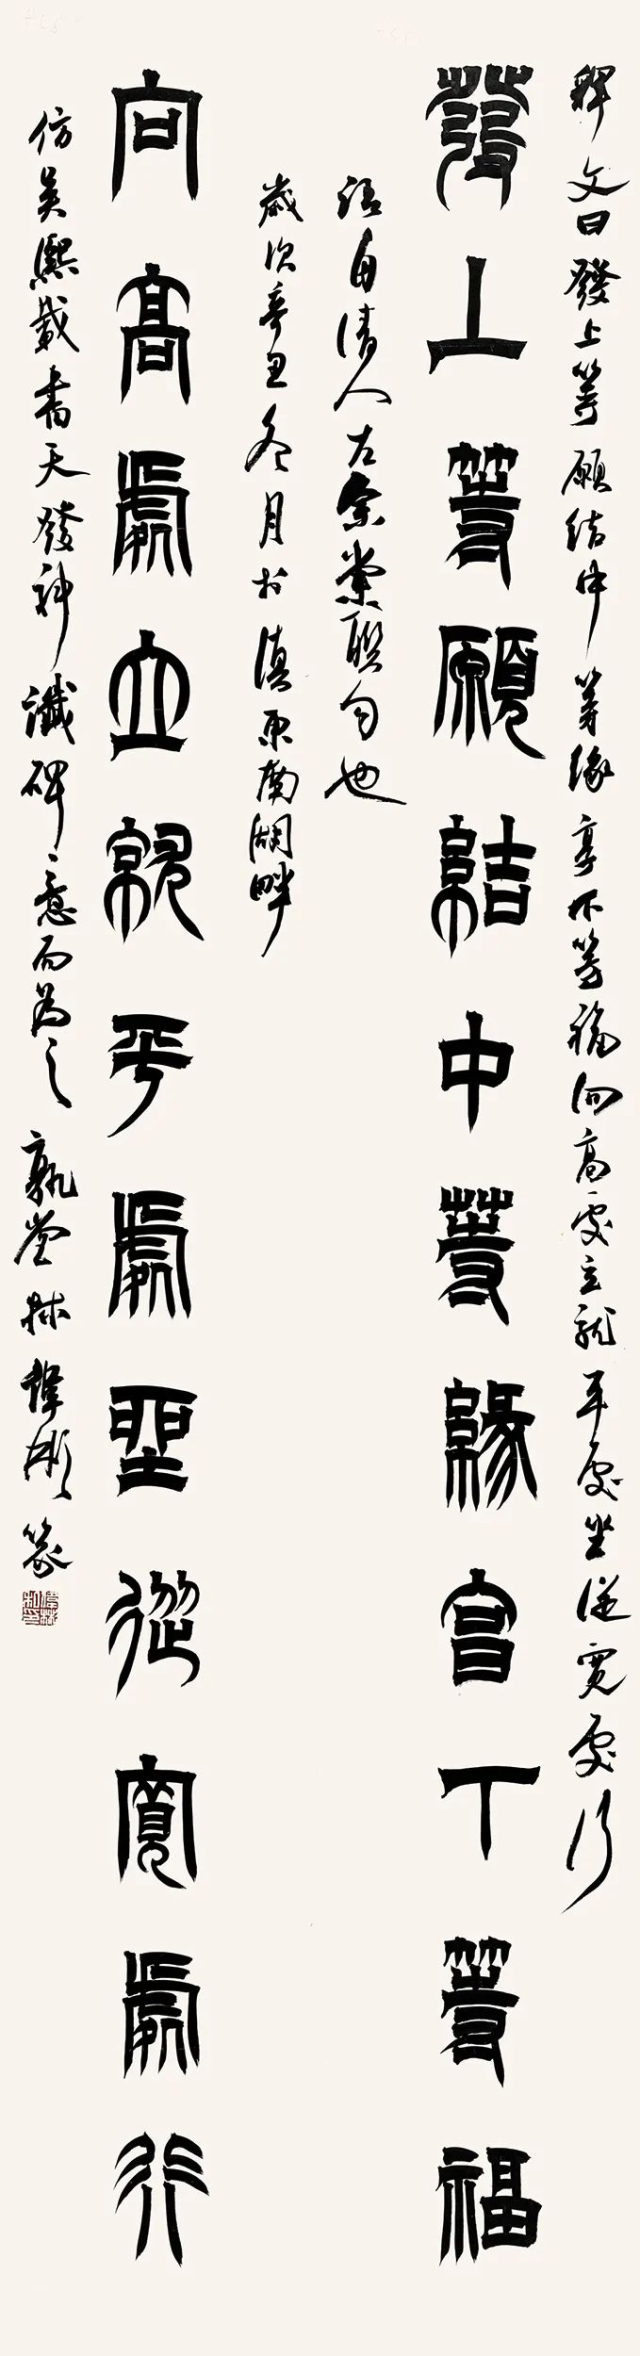 釋文曰發上等願結中等緣享下等福向高處立就平處坐從寬處行
發上等願結中等緣享下等福
語自清人左宗棠聯句也
歲次辛丑冬月於滇東南湖畔
向高處立就平處坐從寬處行
仿吳熙載書天發神讖碑之意而為之 孰堂林偉彬篆